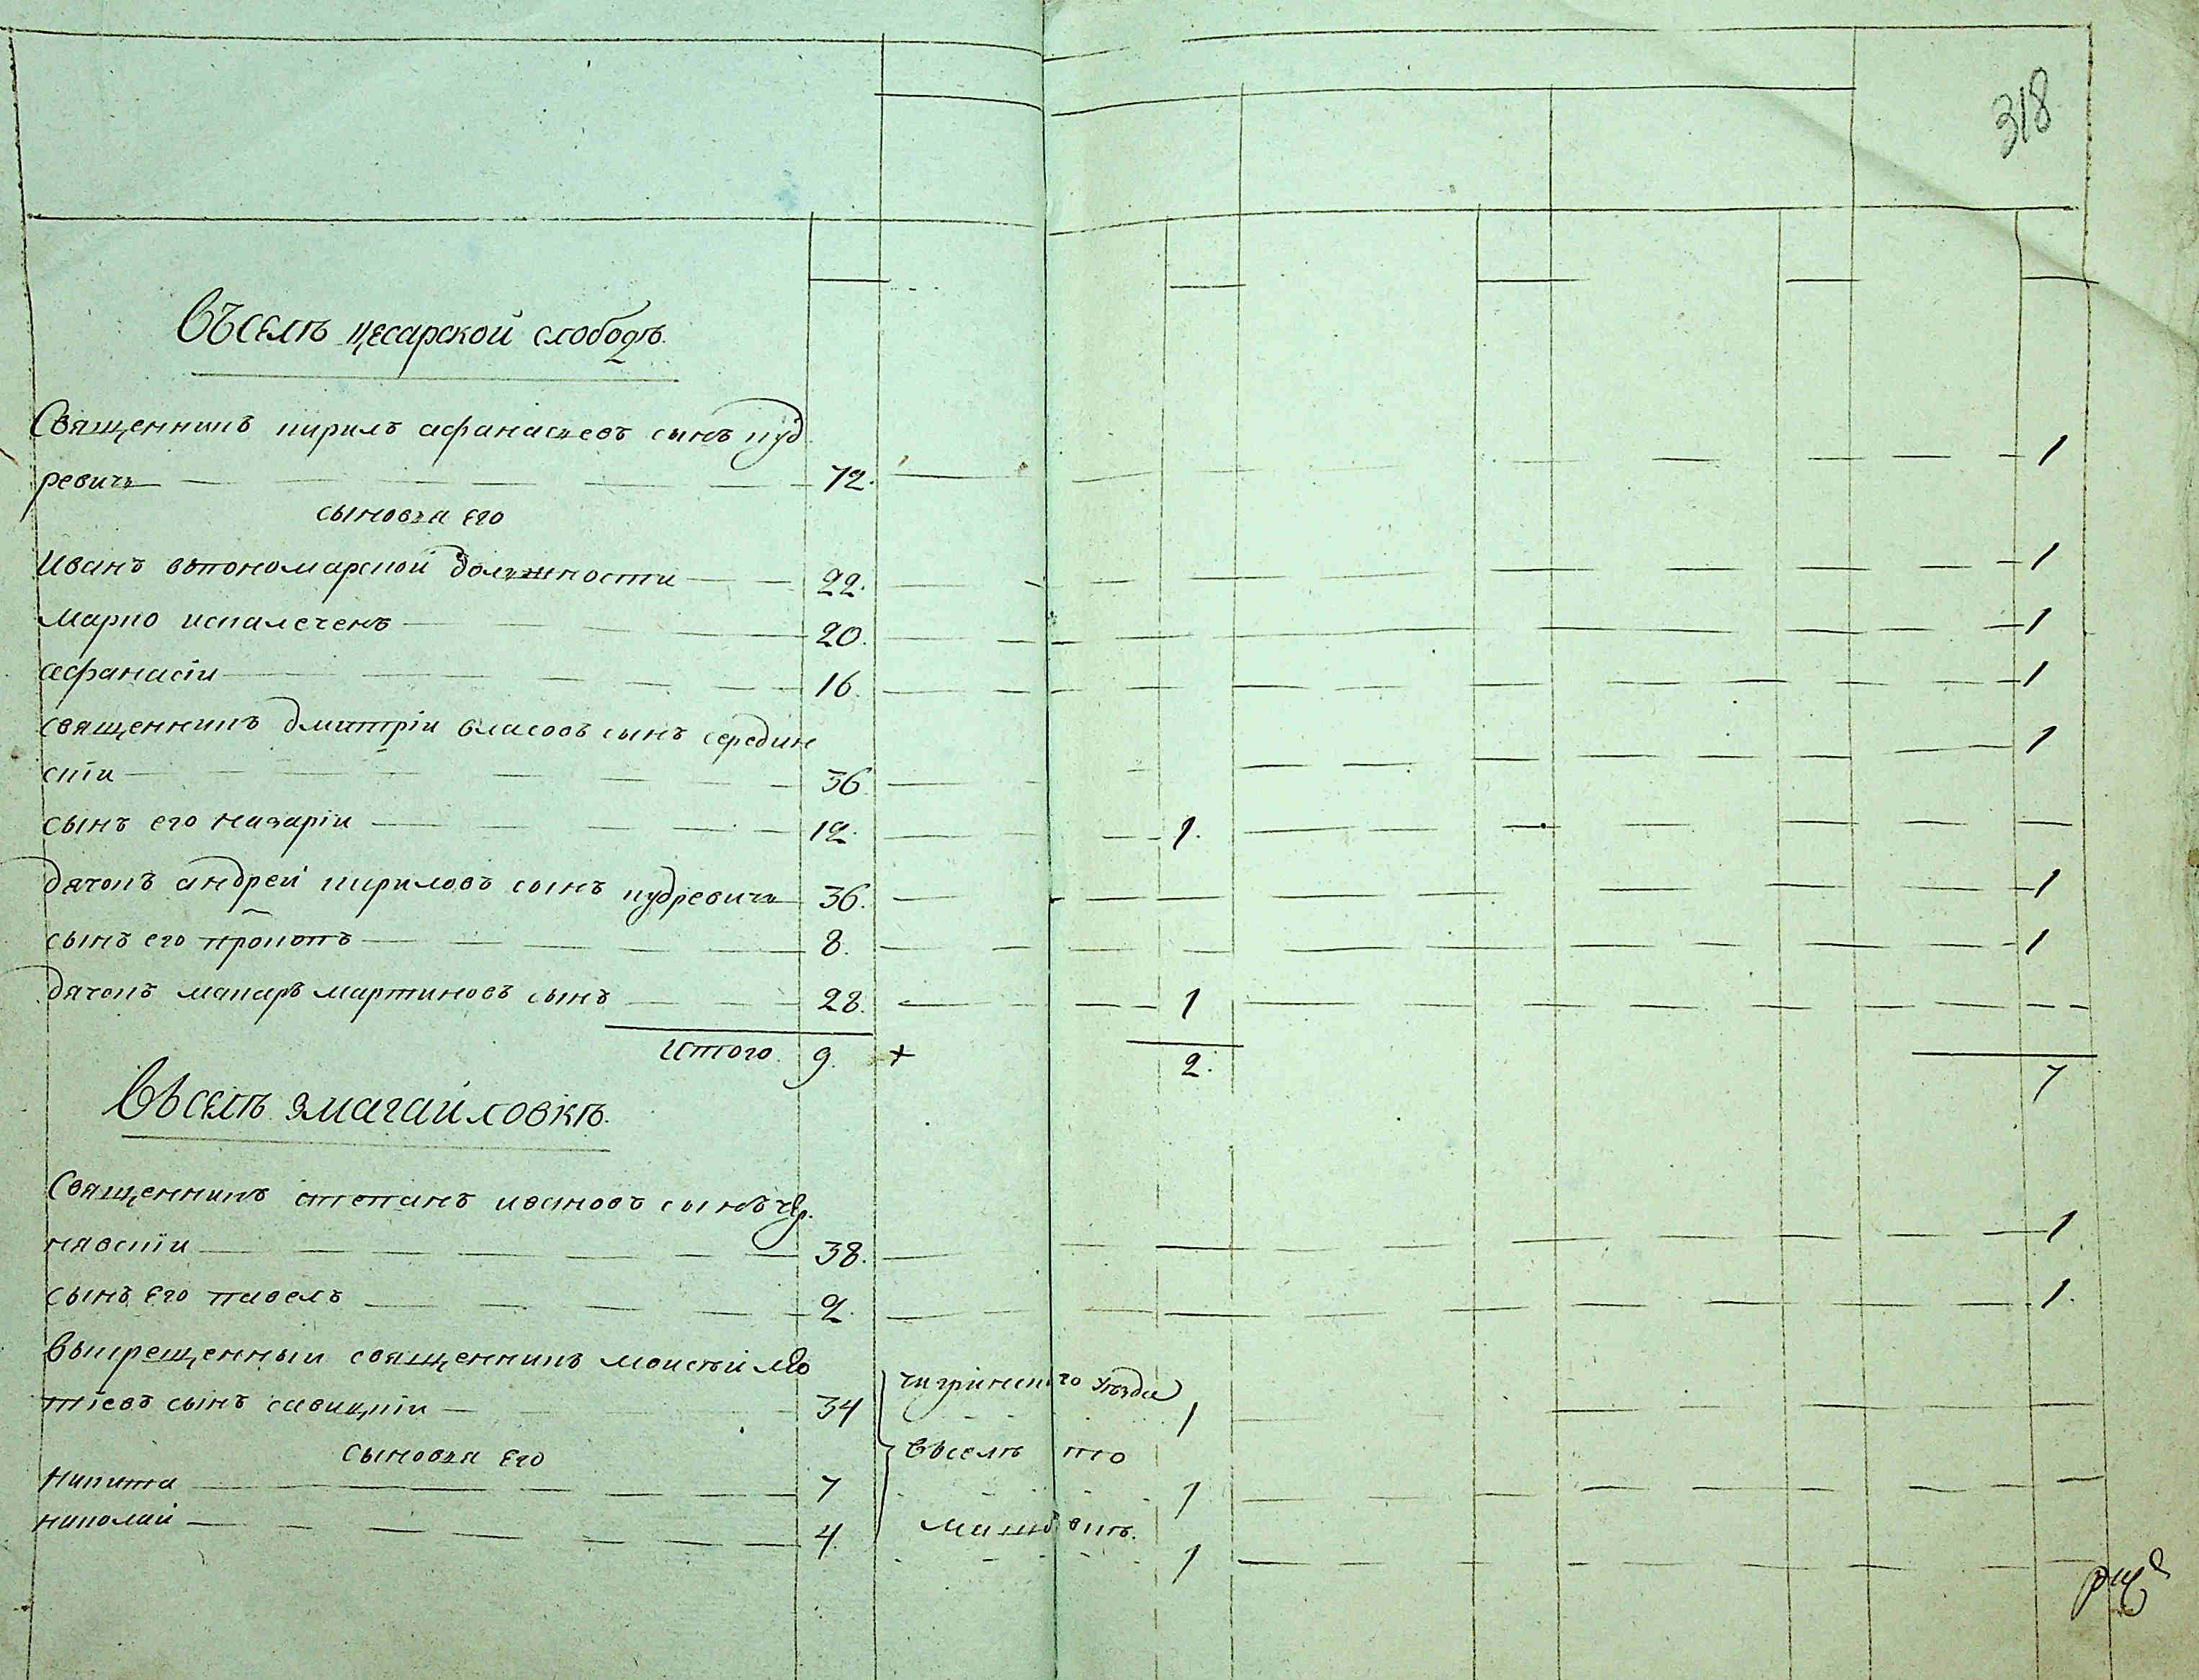 318
Въ селѣ цесарской слободѣ.
Священникъ кирилъ афанасьевъ сынъ куд
ревичь 72. 1
сыновья его
Иванъ въпономарской должности 22. 1
Марко искалеченъ 20. 1
афанасіи 16. 1
священникъ дмитріи власовъ сынъ середин
скіи 36 1
сынъ его назаріи 12. 1.
дячокъ андрей кириловъ сынъ кудревичь 36. 1
сынъ его прокопъ 8. 1
дячокъ макаръ мартиновъ сынъ 28. 1
Итого. 9. + 2. 7
Въ селѣ эмагайловкѣ.
Священникъ степанъ ивановъ сынъ чер
нявскіи 38. 1
сынъ его павелъ 2. 1.
священникъ моисѣй
тіевъ сынъ савицкіи 34 чигринского уѣзда 1
сыновья его въселѣ
Никита 7 1
николай 4. 1